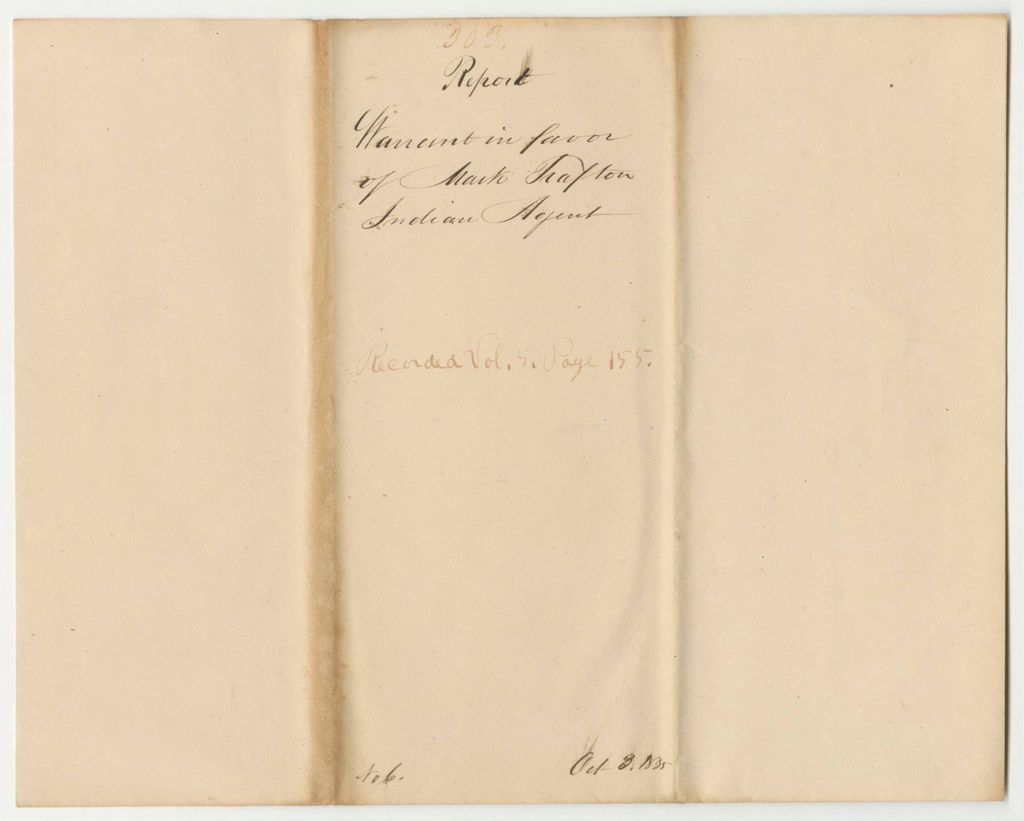 303.
Report
Warrant in favor
of Mark Trafton
Indian Agent
Recorded Vol. 5. Page 155.
No 6.
Oct 3. 1835